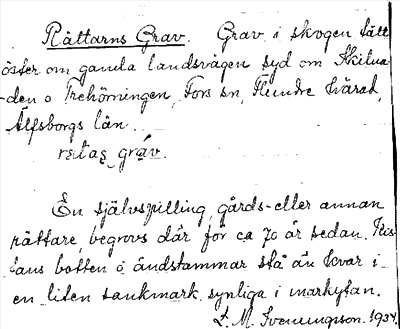 Rättarns Grav. Grav i skogen tätt
öster om gamla landsvägen syd om Skilna-
den o Trehörningen, Fors sn, Flundre härad,
Älfsborgs län.
grav.
En självspilling, gårds- eller annan
rättare, begrovs där för ca 70 år sedan.
botten o ändstammar stå än kvar i
en liten sankmark, synliga i markytan.
L. M. Svenungsson. 1934.